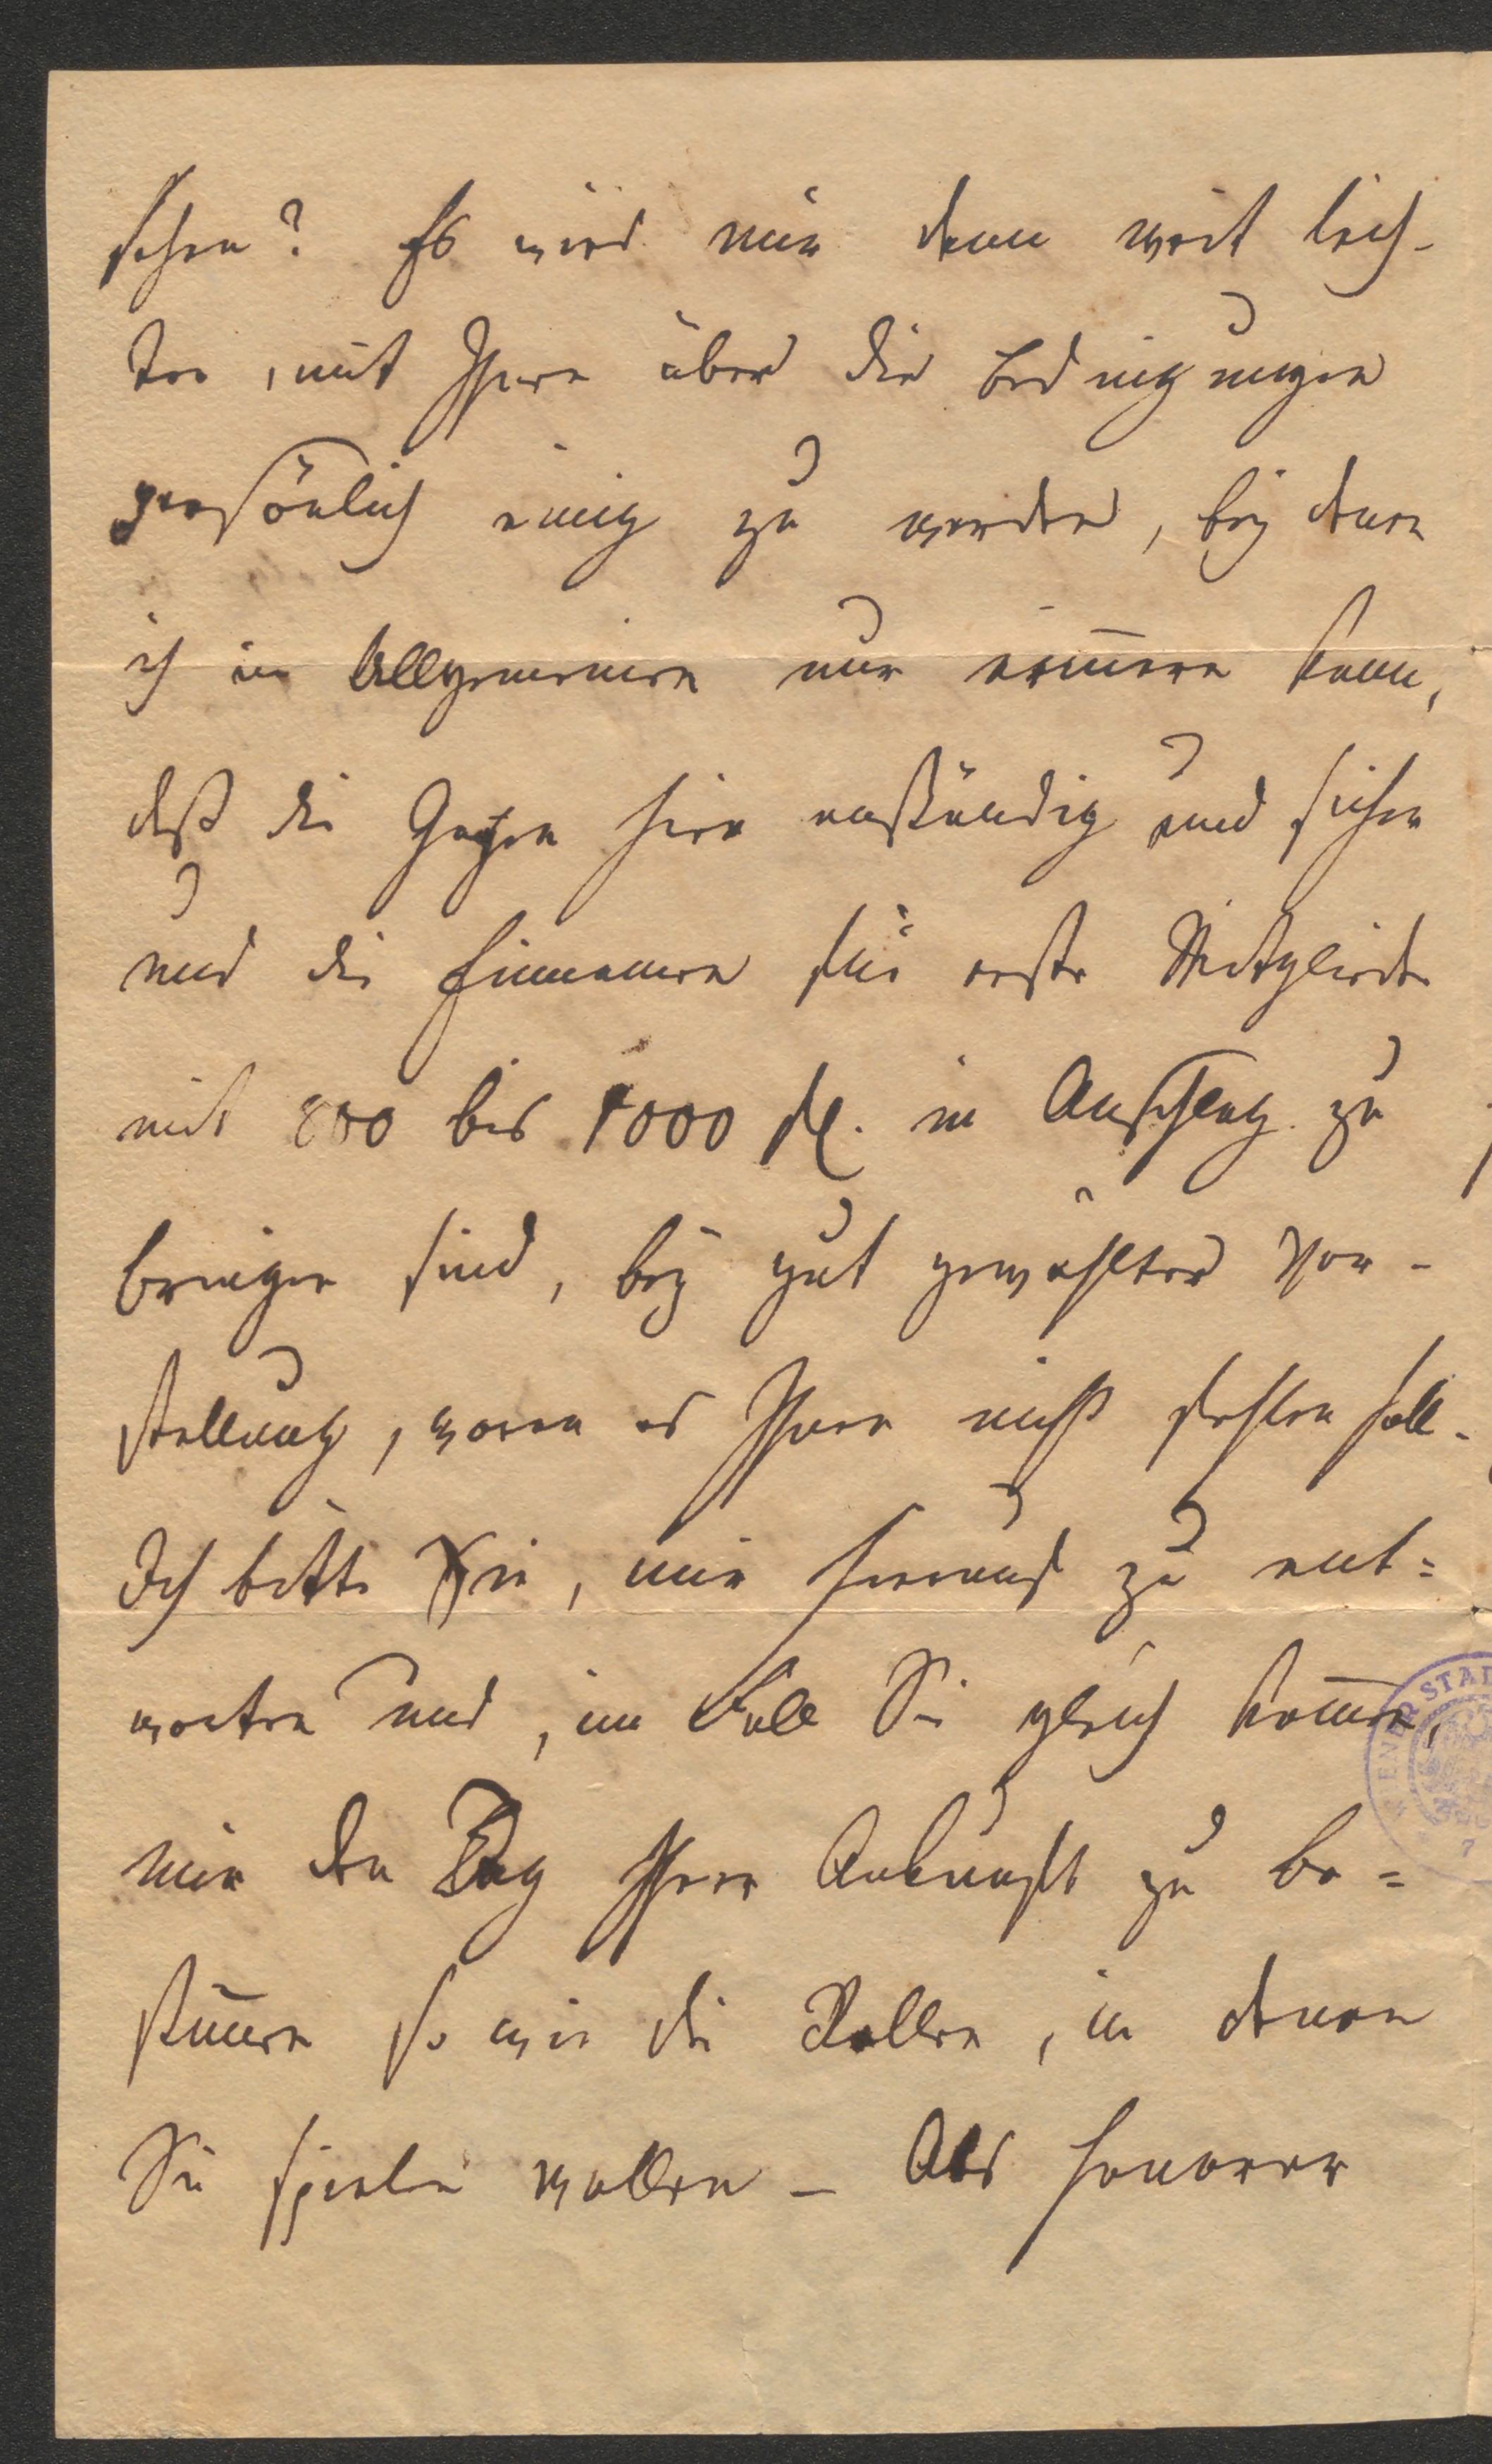 sehen? Es wird mir dann weit leich-
ter, mit Ihnen über die Bedingungen
persönlich einig zu werden, bey denen
ich im Allgemeinen nur erinnern kann,
daß die Gagen hier anständig und sicher
und die Einnamen für erste Mitglieder
mit 800 bis 1000 fl. in Anschlag zu
bringen sind, bey gut gewählter Vor-
stellung, woran es Ihnen nicht fehlen soll.
Ich bitte Sie, mir hierauf zu ant=
worten und, im Fall Sie gleich kom̄en,
mir den Tag Ihrer Ankunft zu be=
stim̄en so wie die Rollen, in denen
Sie spielen wollen – Als Honorar
WIENER STAD
7